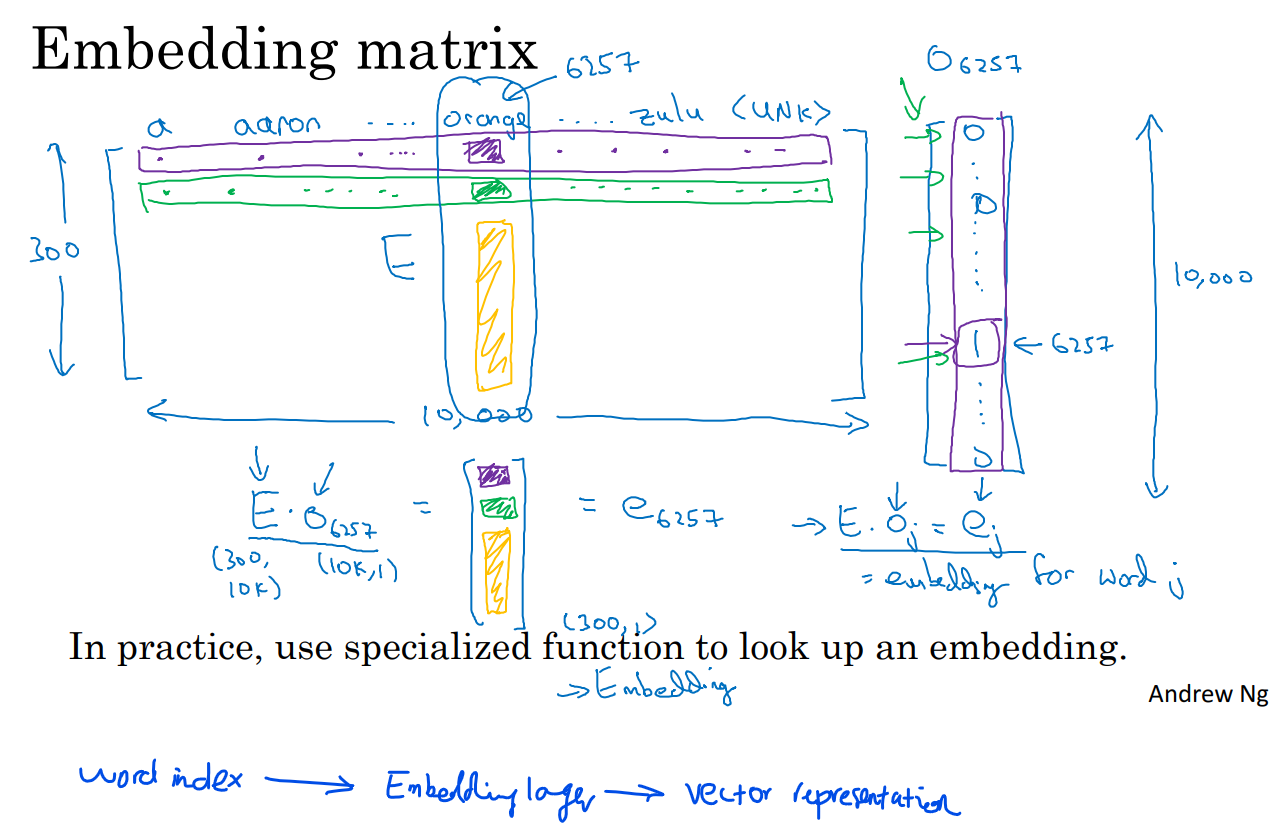 Embedding matrix
6257
O6257
a aaron .... orange .... zulu <UNK>
300
E
0
0
1 ← 6257
0
10,000
10,000
E · O6257 = [ ] = e6257
(300, 10K) (10K,1)
(300,1)
→ E · Oj = ej
= embedding for word j
In practice, use specialized function to look up an embedding.
→ Embedding
Andrew Ng
word index → Embedding layer → vector representation